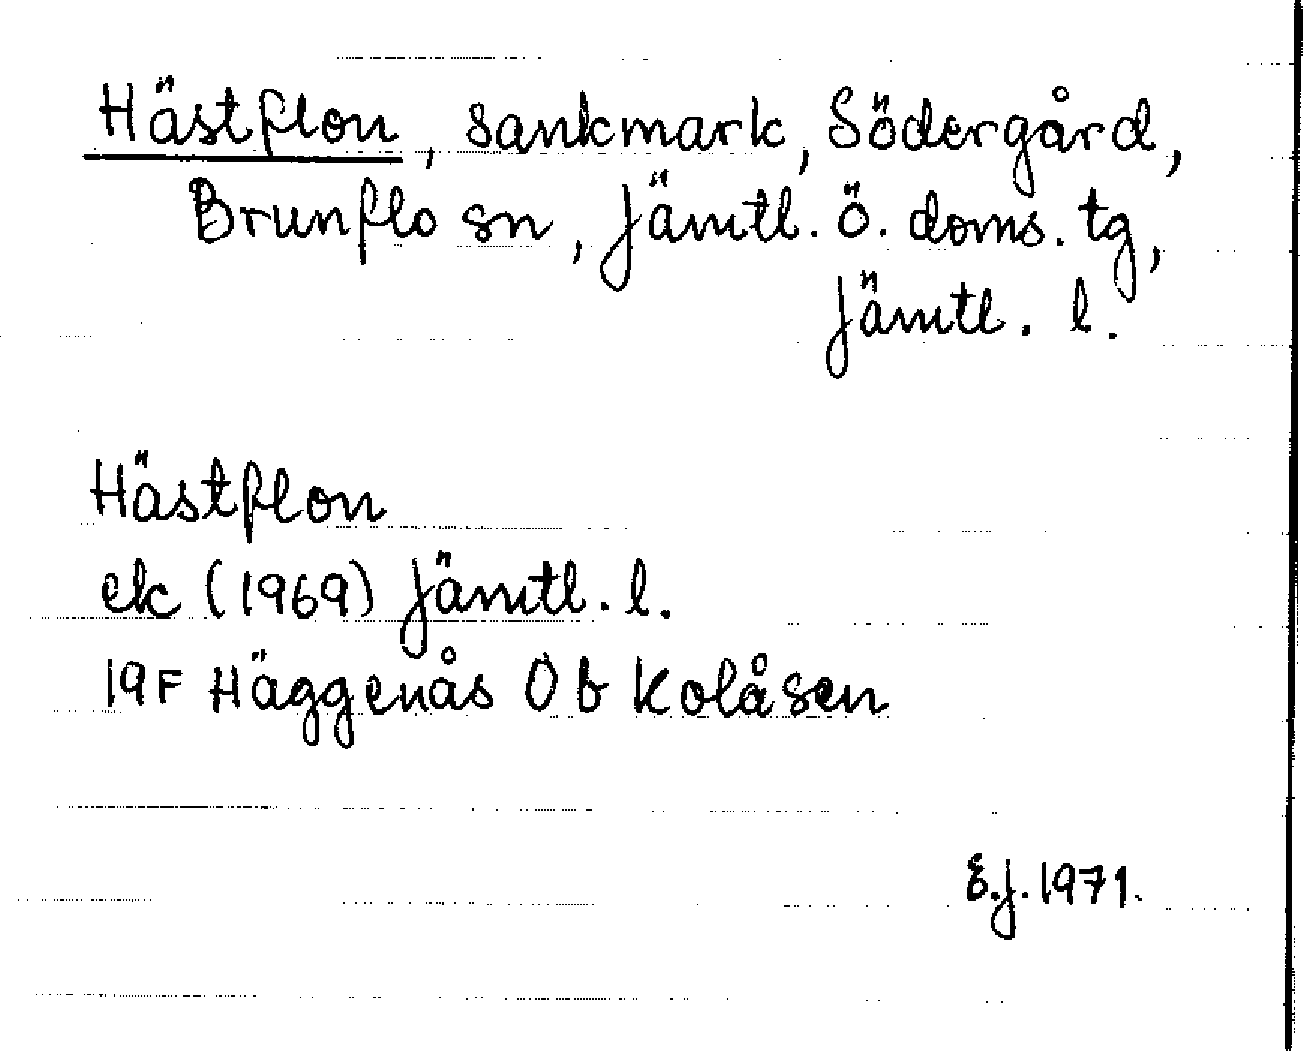 Hästflon, sankmark, Södergård,
Brunflo sn, Jämtl. ö. doms. tg,
Jämtl. l.
Hästflon
ek (1969) Jämtl. l.
19F Häggenås 0 b Kolåsen
E.J. 1971.